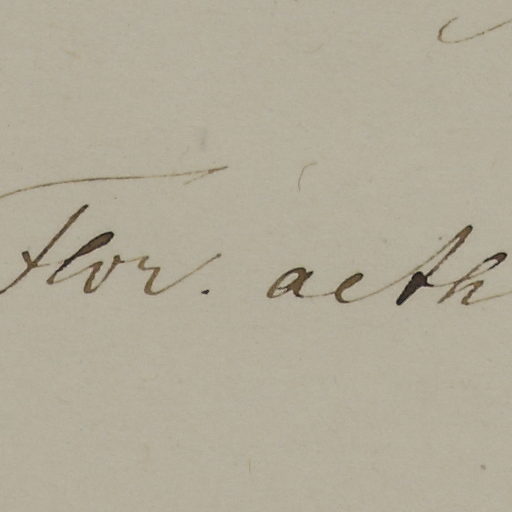 Flor. aeth